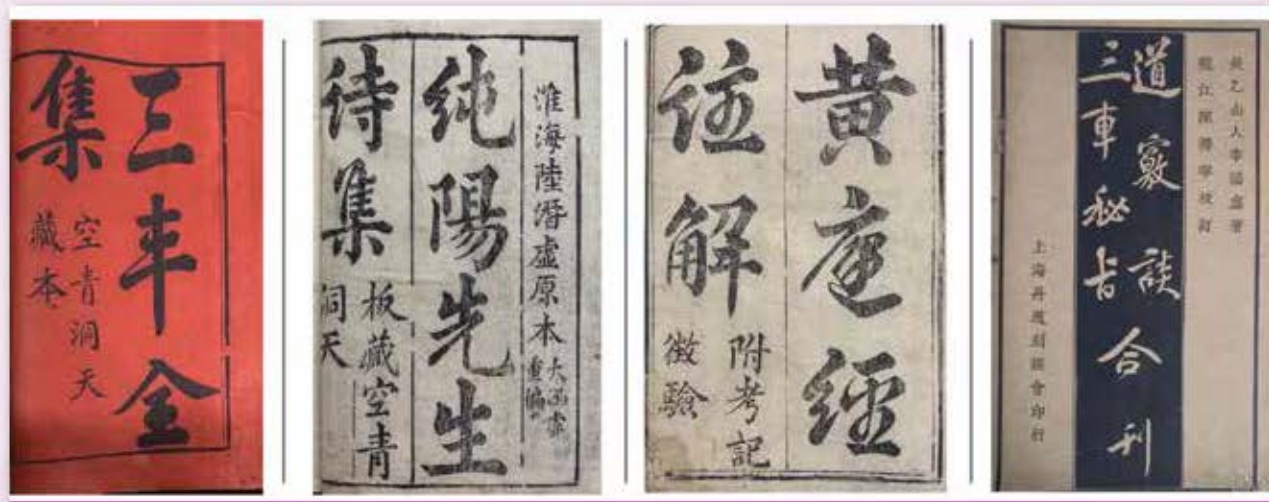 三丰全
集
空青洞天
藏本
淮海陸潛虛原本
涵虛
重編
純陽先生
詩集
板藏空青
洞天
黃庭經
註解
附考記
徵驗
長乙山人李涵虛著
陳攖寧校訂
道竅談
三車秘旨
合刊
上海丹道刻經會印行